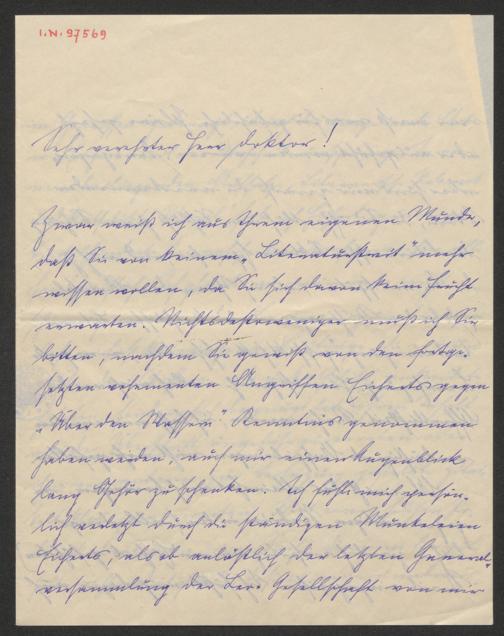 I.N. 97569
Sehr verehrter Herr Doktor!
Zwar weiß ich aus Ihrem eigenen Munde,
daß Sie von keinem „Literaturstreit" mehr
wissen wollen, da Sie sich davon keine Frucht
erwarten. Nichtsdestoweniger muß ich Sie
bitten, nachdem Sie gewiß von den fortge-
setzten vehementen Angriffen Eicherts gegen
„Über den Wassern" Kenntnis genommen
haben werden, auch mir einen Augenblick
lang Gehör zu schenken. Ich fühle mich persön-
lich verletzt durch die ständigen Munkeleien
Eicherts, als ob anläßlich der letzten General-
versammlung der Leo-Gesellschaft von mir